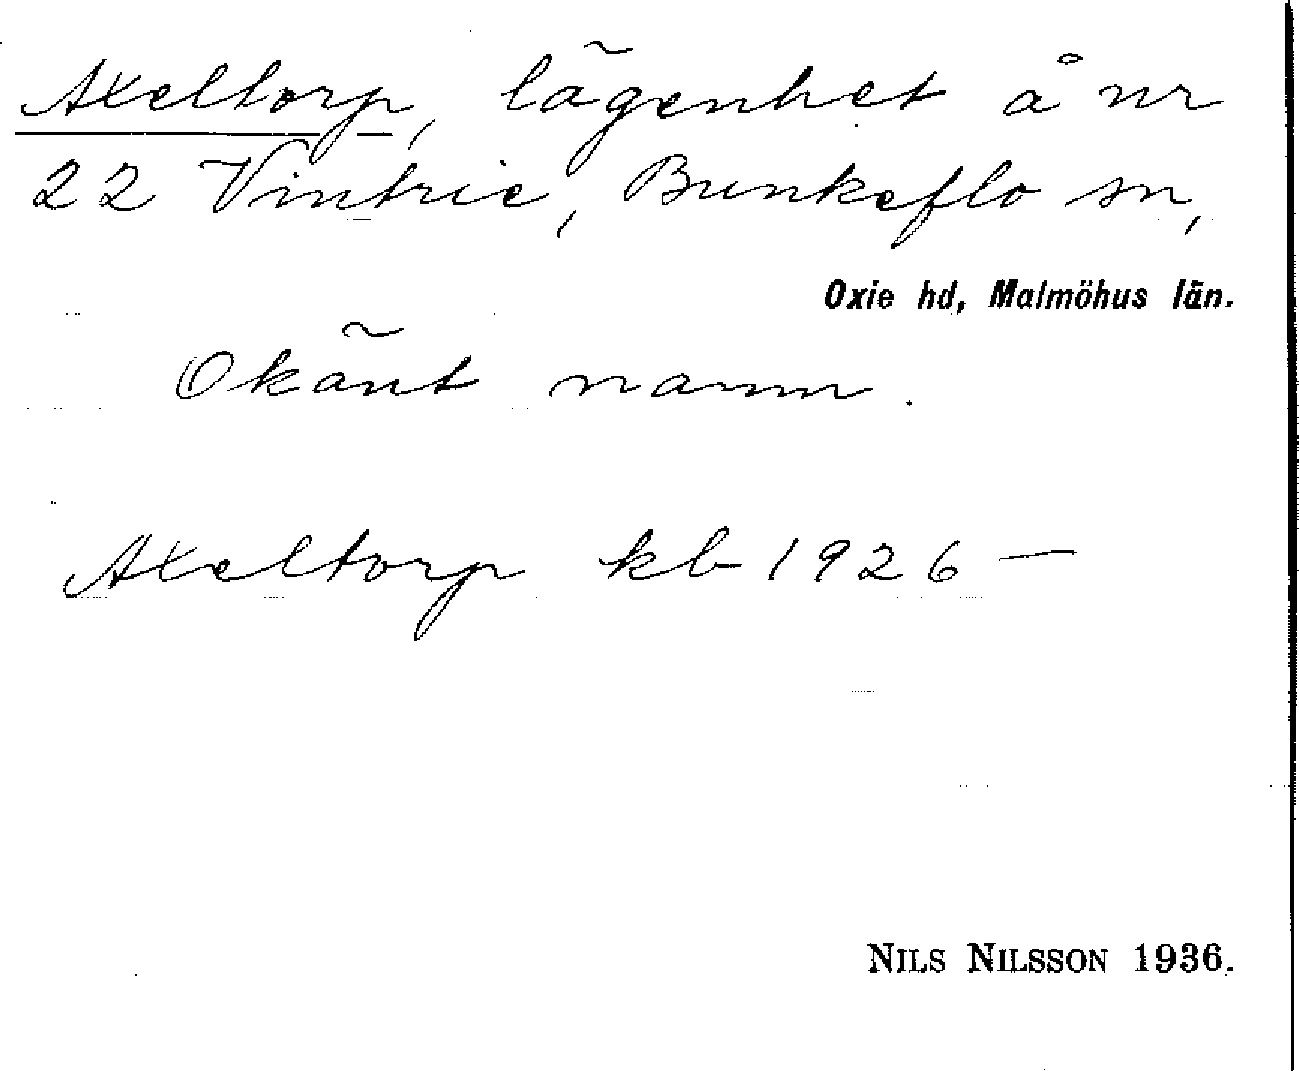 Axeltorp, lägenhet å nr
22 Vintrie, Bunkeflo sn,
Oxie hd, Malmöhus län.
Okänt namn.
Axeltorp kb 1926 —
NILS NILSSON 1936.